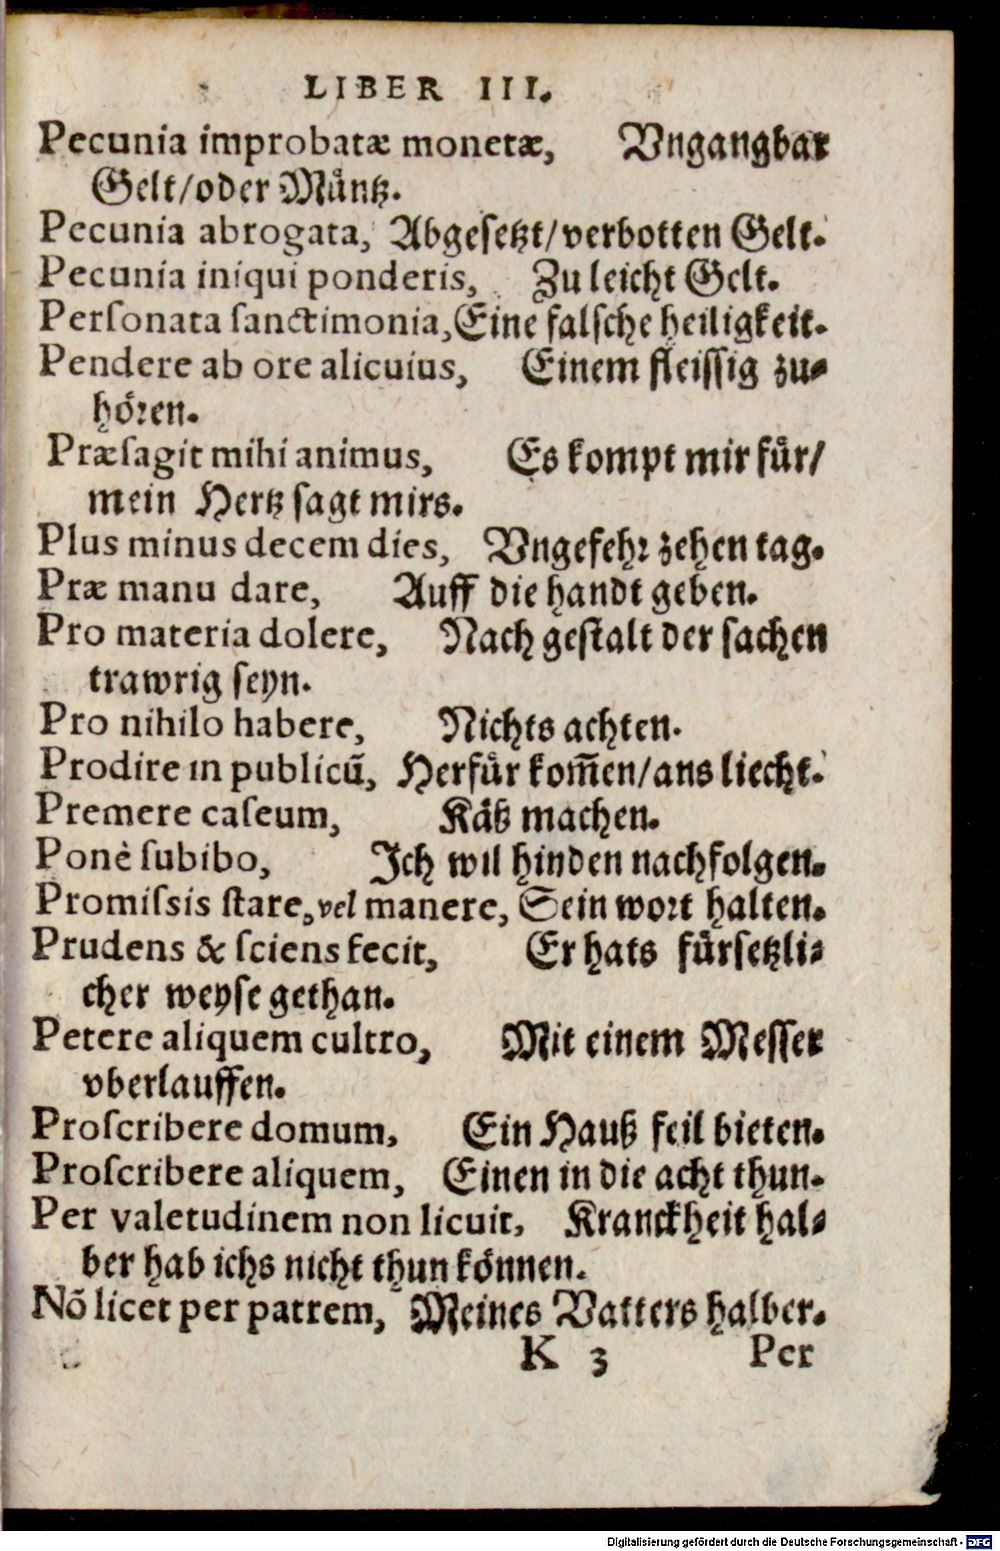 LIBER III.
Pecunia improbatæ monetæ, Vngangbar
Gelt/oder Müntz.
Pecunia abrogata, Abgesetzt/verbotten Gelt.
Pecunia iniqui ponderis, Zu leicht Gelt.
Perſonata ſanctimonia, Eine falſche heiligkeit.
Pendere ab ore alicuius, Einem fleiſſig zu⸗
hören.
Præſagit mihi animus, Es kompt mir für/
mein Hertz ſagt mirs.
Plus minus decem dies, Vngefehr zehen tag.
Præ manu dare, Auff die handt geben.
Pro materia dolere, Nach geſtalt der ſachen
trawrig ſeyn.
Pro nihilo habere, Nichts achten.
Prodire in publicū, Herfür kom̃en/ans liecht.
Premere caſeum, Käß machen.
Ponè ſubibo, Ich wil hinden nachfolgen.
Promiſsis ſtare, vel manere, Sein wort halten.
Prudens & ſciens fecit, Er hats fürſetzli⸗
cher weyſe gethan.
Petere aliquem cultro, Mit einem Meſſer
vberlauffen.
Proſcribere domum, Ein Hauß feil bieten.
Proſcribere aliquem, Einen in die acht thun.
Per valetudinem non licuit, Kranckheit hal⸗
ber hab ichs nicht thun können.
Nō licet per patrem, Meines Vatters halber.
K 3 Per
Digitalisierung gefördert durch die Deutsche Forschungsgemeinschaft - DFG